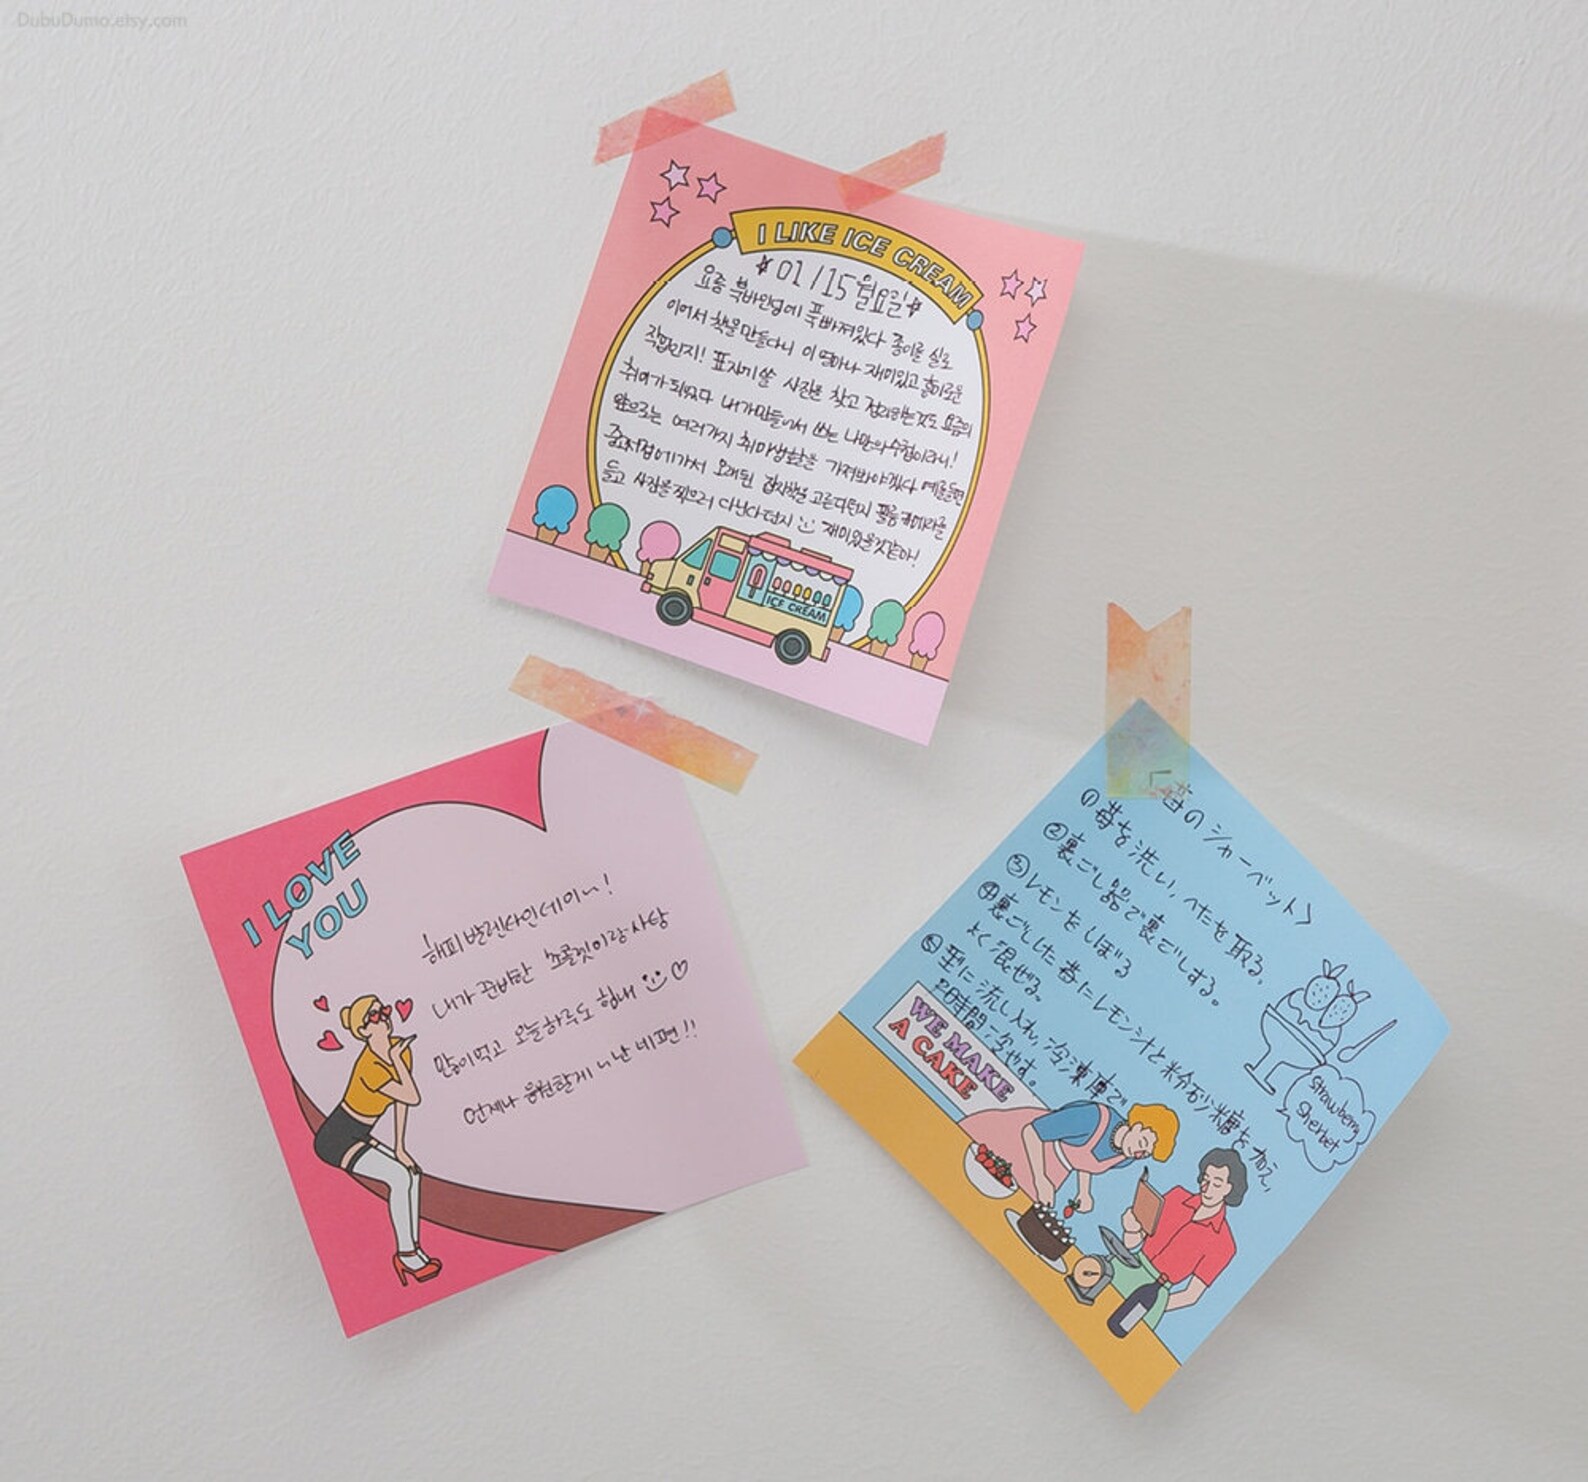 DubuDumo.etsy.com
I LIKE ICE CREAM
01/15 월요일
요즘 북바인딩에 푹빠져있다 종이를 실로
이어서 책을만들다니 이 얼마나 재미있고 흥미로운
작업인지! 표지기쓸 사진을 찾고 정리하는것도 요즘의
취미가 되었다 내가만들어서 쓰는 나만의수첩이라니!
앞으로는 여러가지 취미생활을 가져봐야겠다 예를들면
중고서점에가서 오래된 잡지책을 고른다던지 필름카메라를
들고 사진을찍으러 다닌다던지 재미있을것같아!
ICE CREAM
I LOVE
YOU
해피발렌타인데이~!
내가 준비한 초콜릿이랑 사탕
많이먹고 오늘하루도 힘내
언제나 응원할게 난 네편!!
苺のシャーベット〉
①苺を洗い、へたを取る。
②裏ごし器で裏ごしする。
③レモンをしぼる
④裏ごしした苺にレモン汁と粉砂糖を加え、
よく混ぜる。
⑤型に流し入れ、冷凍庫で
時間冷やす。
Strawberry
Sherbet
WE MAKE
A CAKE